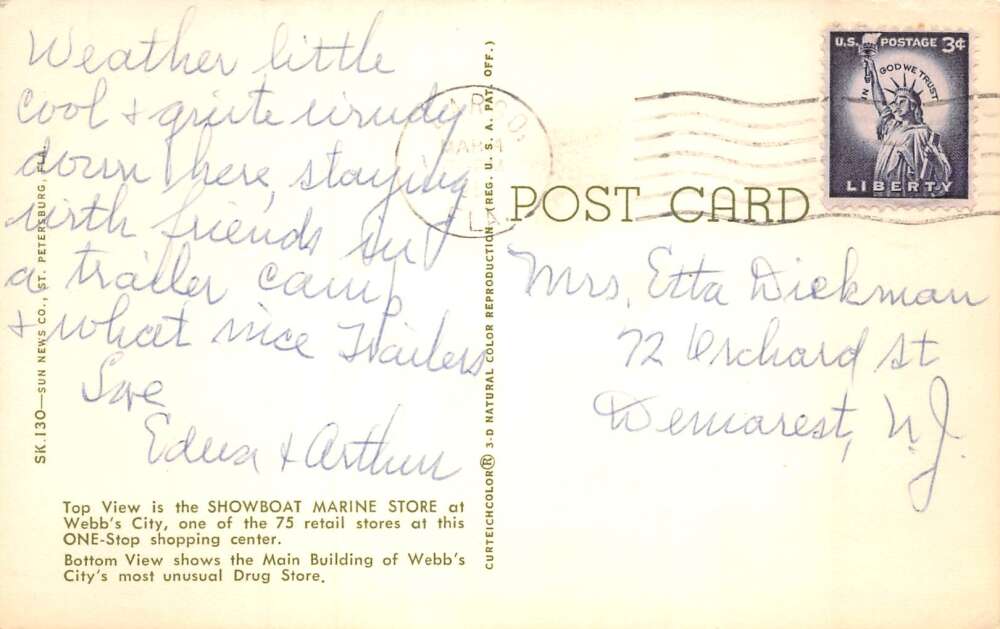 Weather little
cool + quite windy
down here, staying
with friends in
a trailer camp
+ what nice Trailers
Love
Edna + Arthur
SK.130—SUN NEWS CO., ST. PETERSBURG, FLA.
Top View is the SHOWBOAT MARINE STORE at
Webb's City, one of the 75 retail stores at this
ONE-Stop shopping center.
Bottom View shows the Main Building of Webb's
City's most unusual Drug Store.
CURTEICHCOLOR® 3-D NATURAL COLOR REPRODUCTION (REG. U. S. A. PAT. OFF.)
POST CARD
U.S. POSTAGE 3¢
IN GOD WE TRUST
LIBERTY
Mrs. Etta Dickman
72 Orchard St
Demarest, N.J.